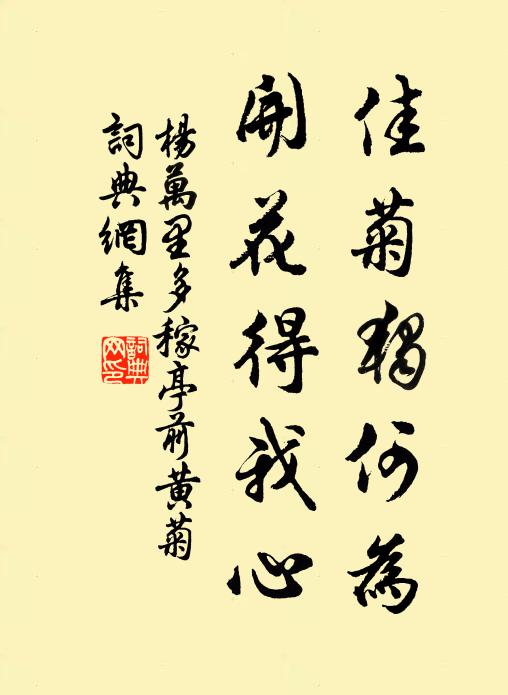 佳菊獨何為
開花得我心
楊萬里多稼亭前黃菊
詞典網集
詞典網印